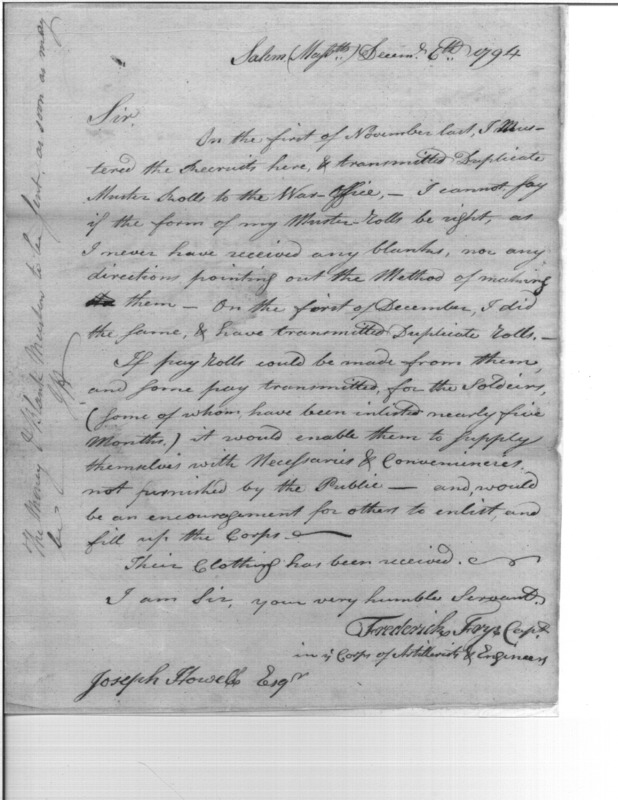 Salem (Masstts) Decemr. 6th. 1794
Sir.
On the first of November last, I Mus-
tered the Recruits here, & transmitted Duplicate
Muster Rolls to the War-Office, — I cannot say
if the form of my Muster-Rolls be right, as
I never have received any blanks, nor any
directions pointing out the Method of making
them — On the first of December, I did
the same, & have transmitted Duplicate Rolls. —
If pay Rolls could be made from them,
and some pay transmitted, for the Soldeirs,
(some of whom, have been inlisted nearly five
Months.) it would enable them to supply
themselves with Necessaries & Conveniencies,
not furnished by the Public — and, would
be an encouragement for others to enlist, and
fill up the Corps. —
Their Clothing has been received. —
I am Sir, your very humble Servant,
Frederick Frye Capt.
in ye Corps of Artillerists & Engineers
Joseph Howell Esqr
The Money & Blank Musters to be sent. as soon as may
be
JH